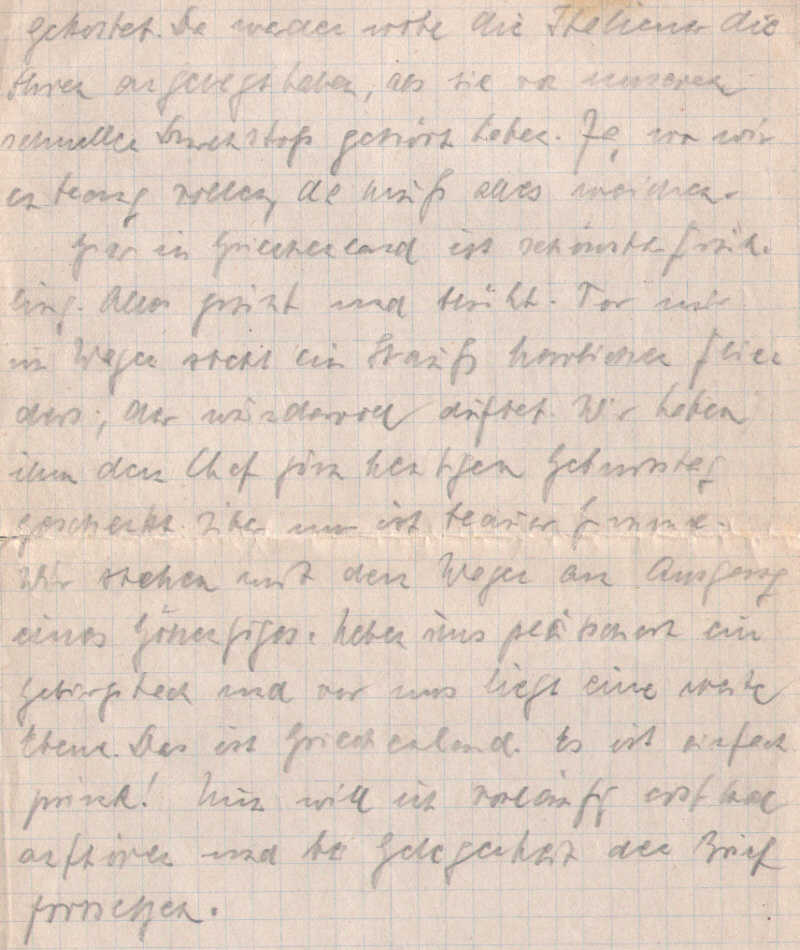 gekostet. Da werden wohl die Italiener die
Ohren angelegt haben, als sie von unserem
schnellen Durchstoß gehört haben. Ja, wo wir
entlang rollen, da muß alles weichen.
Hier in Griechenland ist schönster Früh-
ling. Alles grünt und blüht. Vor mir
im Wagen steht ein Strauß herrlichen Flie
ders, der wundervoll duftet. Wir haben
ihn dem Chef zum heutigen Geburtstag
geschenkt. Über uns ist blauer Himmel.
Wir stehen mit dem Wagen am Ausgang
eines Höhenzuges. Neben uns plätschert ein
Gebirgsbach und vor uns liegt eine weite
Ebene. Das ist Griechenland. Es ist einfach
prima! Nun will ich vorläufig erst mal
aufhören und bei Gelegenheit den Brief
fortsetzen.